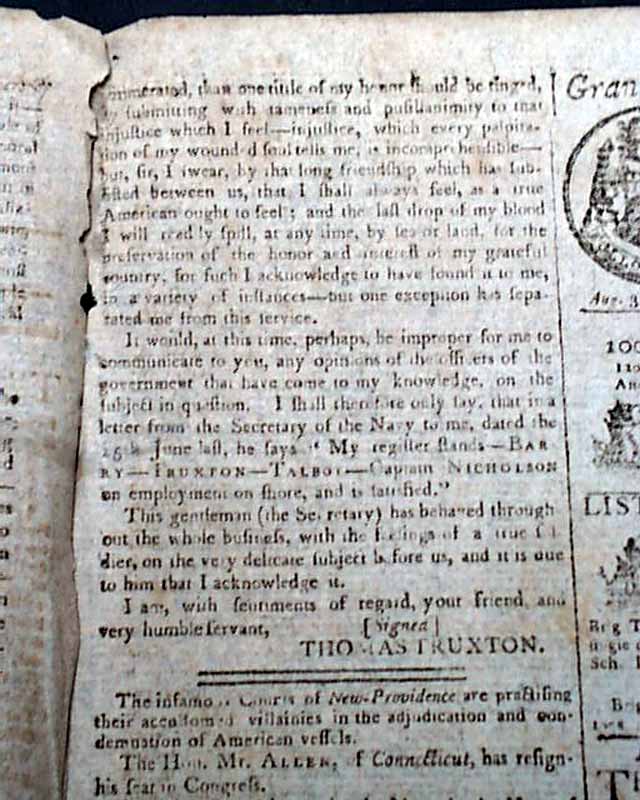 enumerated, than one tittle of my honor should be tinged,
by submitting with tameness and pusillanimity to that
injustice which I feel—injustice, which every palpita-
tion of my wounded soul tells me, is incomprehensible—
but, sir, I swear, by that long friendship which has sub-
sisted between us, that I shall always feel, as a true
American ought to feel; and the last drop of my blood
I will readily spill, at any time, by sea or land, for the
preservation of the honor and interest of my grateful
country, for such I acknowledge to have found it to me,
in a variety of instances—but one exception has sepa-
rated me from this service.
It would, at this time, perhaps, be improper for me to
communicate to you, any opinions of the officers of the
government that have come to my knowledge, on the
subject in question. I shall therefore only say, that in a
letter from the Secretary of the Navy to me, dated the
25th June last, he says " My register stands—BAR-
RY—TRUXTON—TALBOT—Captain NICHOLSON
on employment on shore, and is satisfied."
This gentleman (the Secretary) has behaved through
out the whole business, with the feelings of a true sol-
dier, on the very delicate subject before us, and it is due
to him that I acknowledge it.
I am, with sentiments of regard, your friend and
very humble servant, [Signed]
THOMAS TRUXTON.
The infamous Courts of New-Providence are practising
their accustomed villainies in the adjudication and con-
demnation of American vessels.
The Hon. Mr. ALLEN, of Connecticut, has resign-
his seat in Congress.
Gran
Aug. 3
100
LIST
Brig T
Sch.
Brig
T